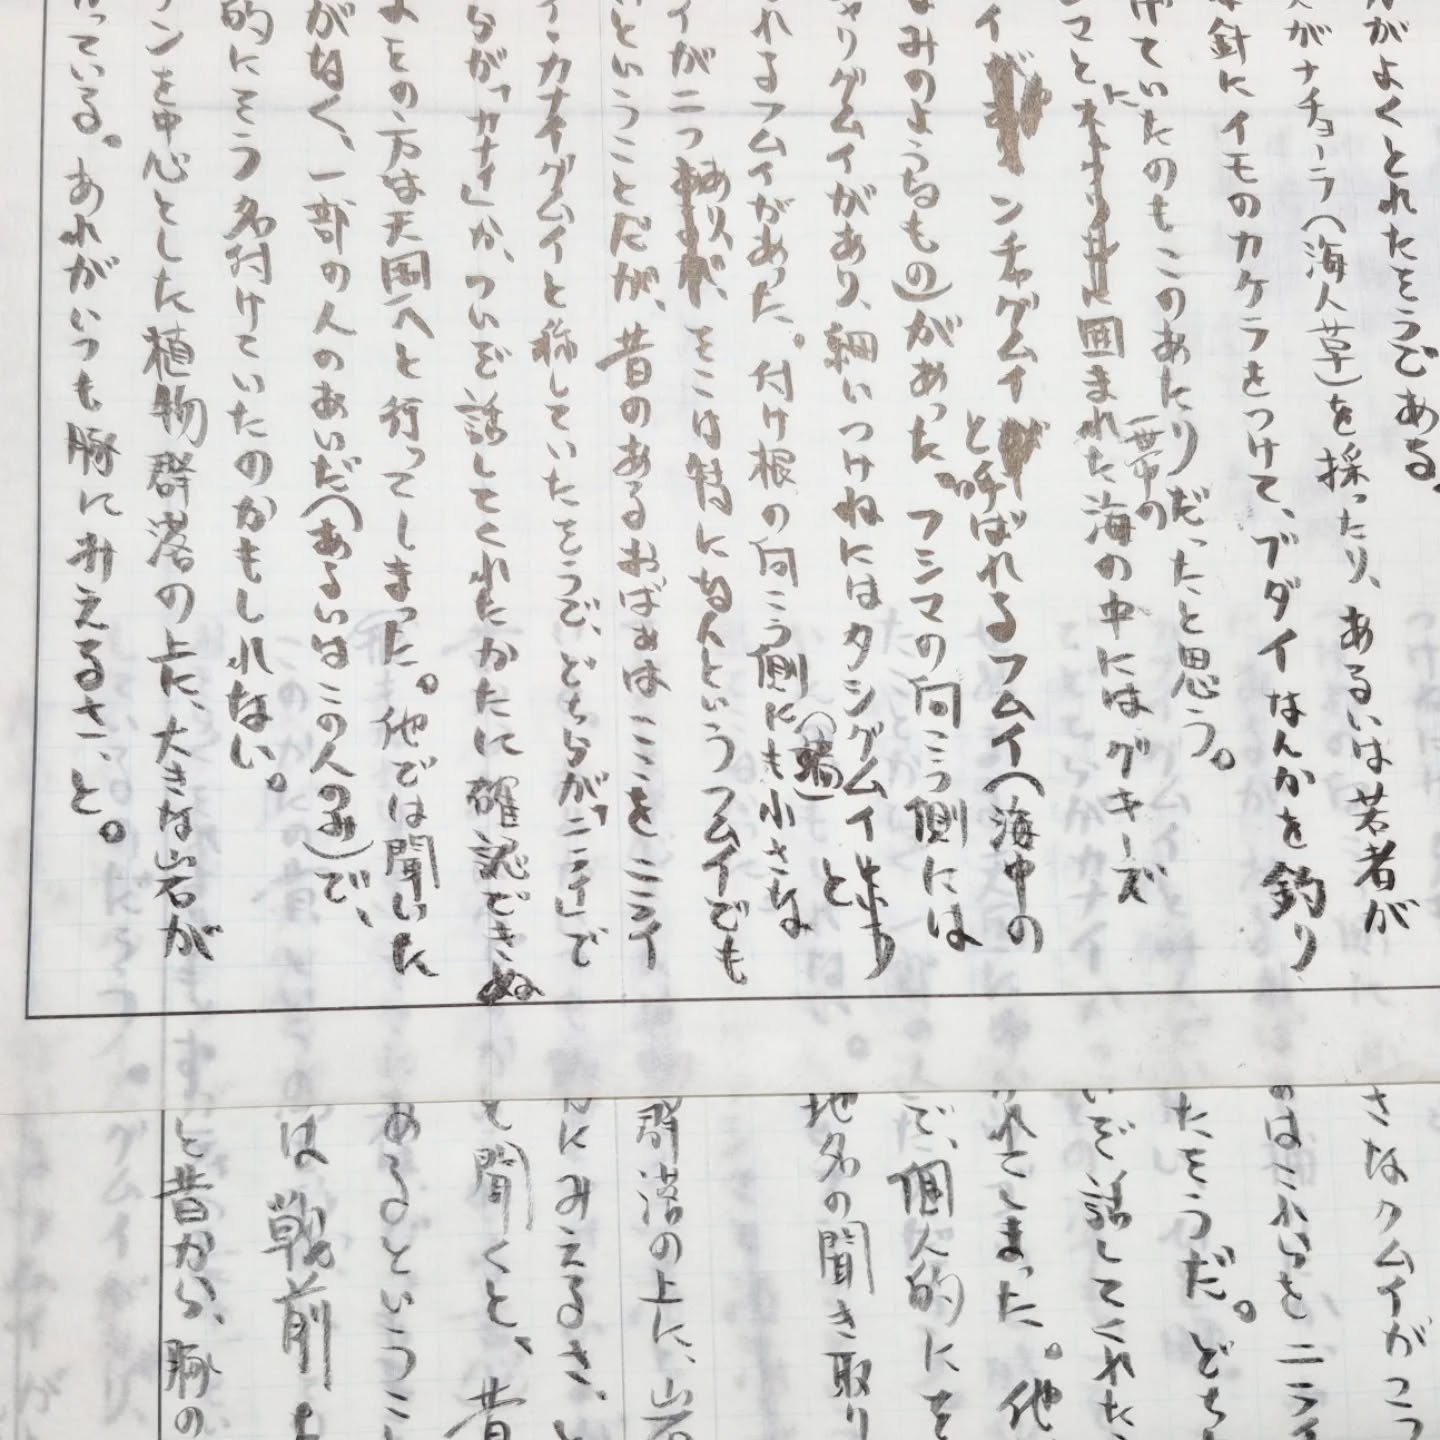 がよくとれたそうである。
がナチョーラ(海人草)を採ったり、あるいは若者が
針にイモのカケラをつけて、ブダイなんかを釣り
ていたのもこのあたりだったと思う。
マとに囲まれた一帯の海の中にはグキーズ
インチャグムイと呼ばれるフムイ(海中の
みのようなもの)があった。フシマの向こう側には
ナリグムイがあり、細いつけねにはタシグムイと
れるフムイがあった。付け根の向こう側(端)にも小さな
イが二つあり、そこは特になんというフムイでも
ということだが、昔のあるおばぁはここをニライ
イ・カナイグムイと称していたそうで、どちらが「ニライ」で
らが「カナイ」か、ついぞ話してくれたかたに確認できぬ
その方は天国へと行ってしまった。他では聞いた
がなく、一部の人のあいだ(あるいはこの人のみ)で、
的にそう名付けていたのかもしれない。
ンを中心とした植物群落の上に、大きな岩が
っている。あれがいつも豚にみえるさー、と。
さなクムイがこつ
はこれらをニライ
たそうだ。どち
いぞ話してくれた
れてしまった。他
で、個人的にそ
地名の聞き取り
群落の上に、岩
にみえるさ、と
と聞くと、昔
あるということ
は戦前
と昔から、豚の